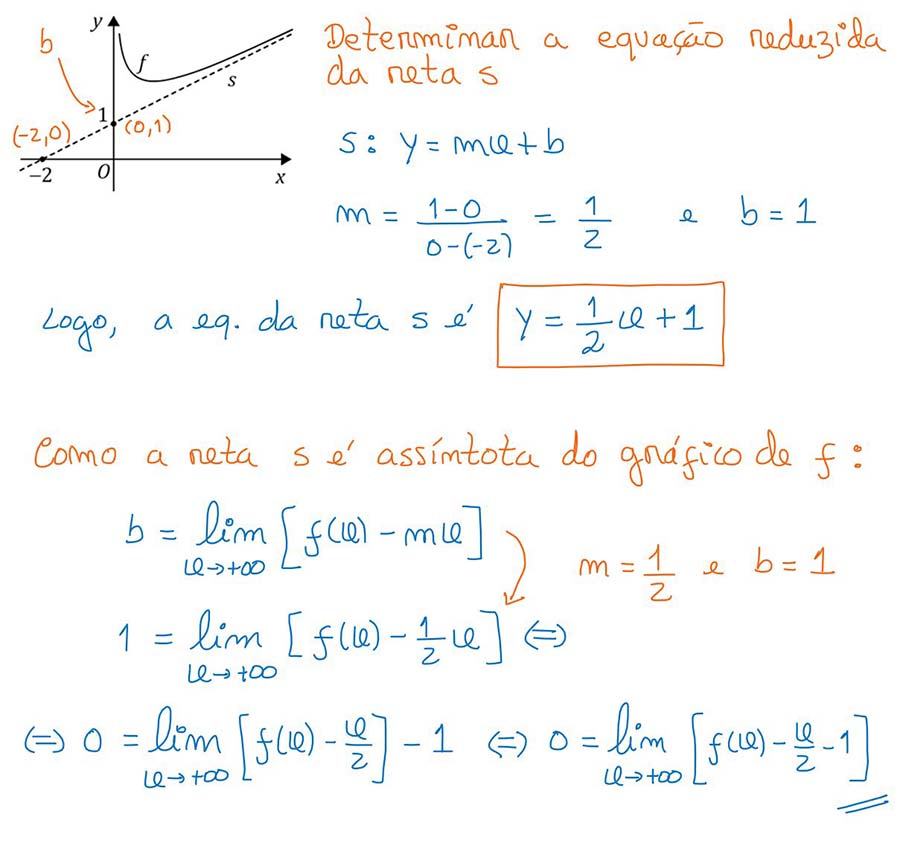 b
y
f
s
1
(-2,0)
(0,1)
-2
O
x
Determinar a equação reduzida
da reta s
s: y = mx + b
m = \frac{1-0}{0-(-2)} = \frac{1}{2} e b = 1
Logo, a eq. da reta s é y = \frac{1}{2}x + 1
Como a reta s é assíntota do gráfico de f:
b = lim_{x→+∞} [f(x) - mx]
m = \frac{1}{2} e b = 1
1 = lim_{x→+∞} [f(x) - \frac{1}{2}x] ⇔
⇔ 0 = lim_{x→+∞} [f(x) - \frac{x}{2}] - 1 ⇔ 0 = lim_{x→+∞} [f(x) - \frac{x}{2} - 1]